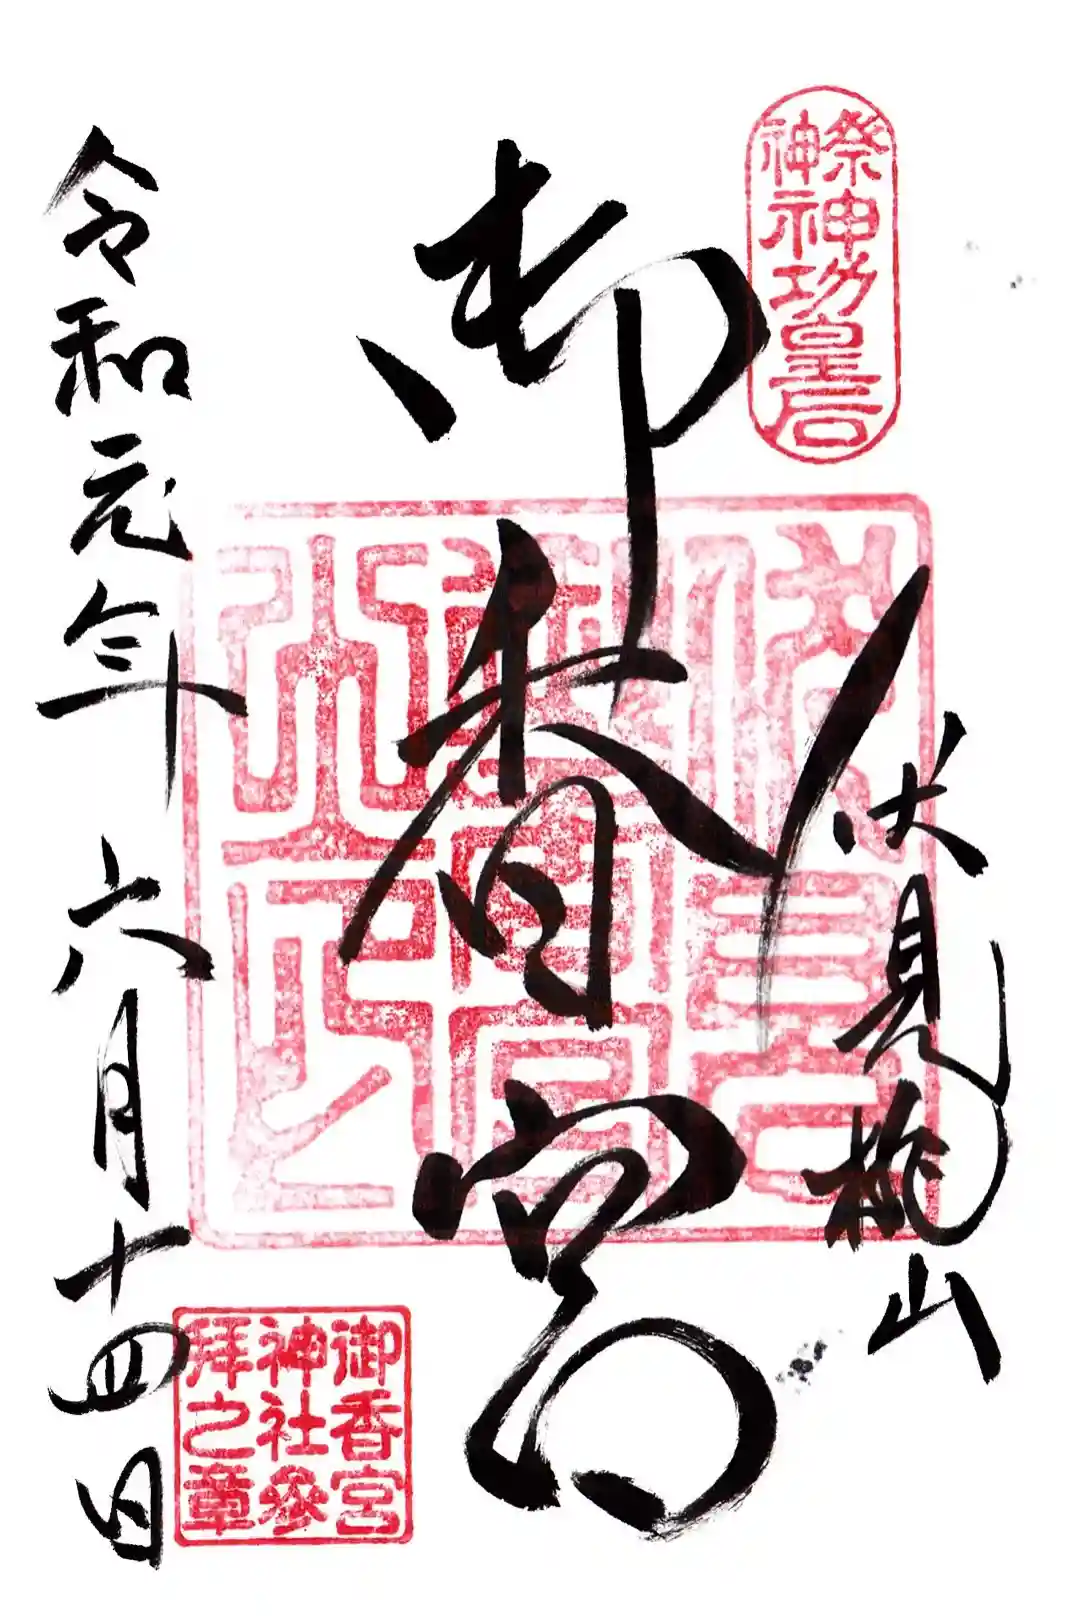 祭神
神功皇后
伏見桃山
御香宮
御香宮
神社參
拜之章
令和元年六月十四日